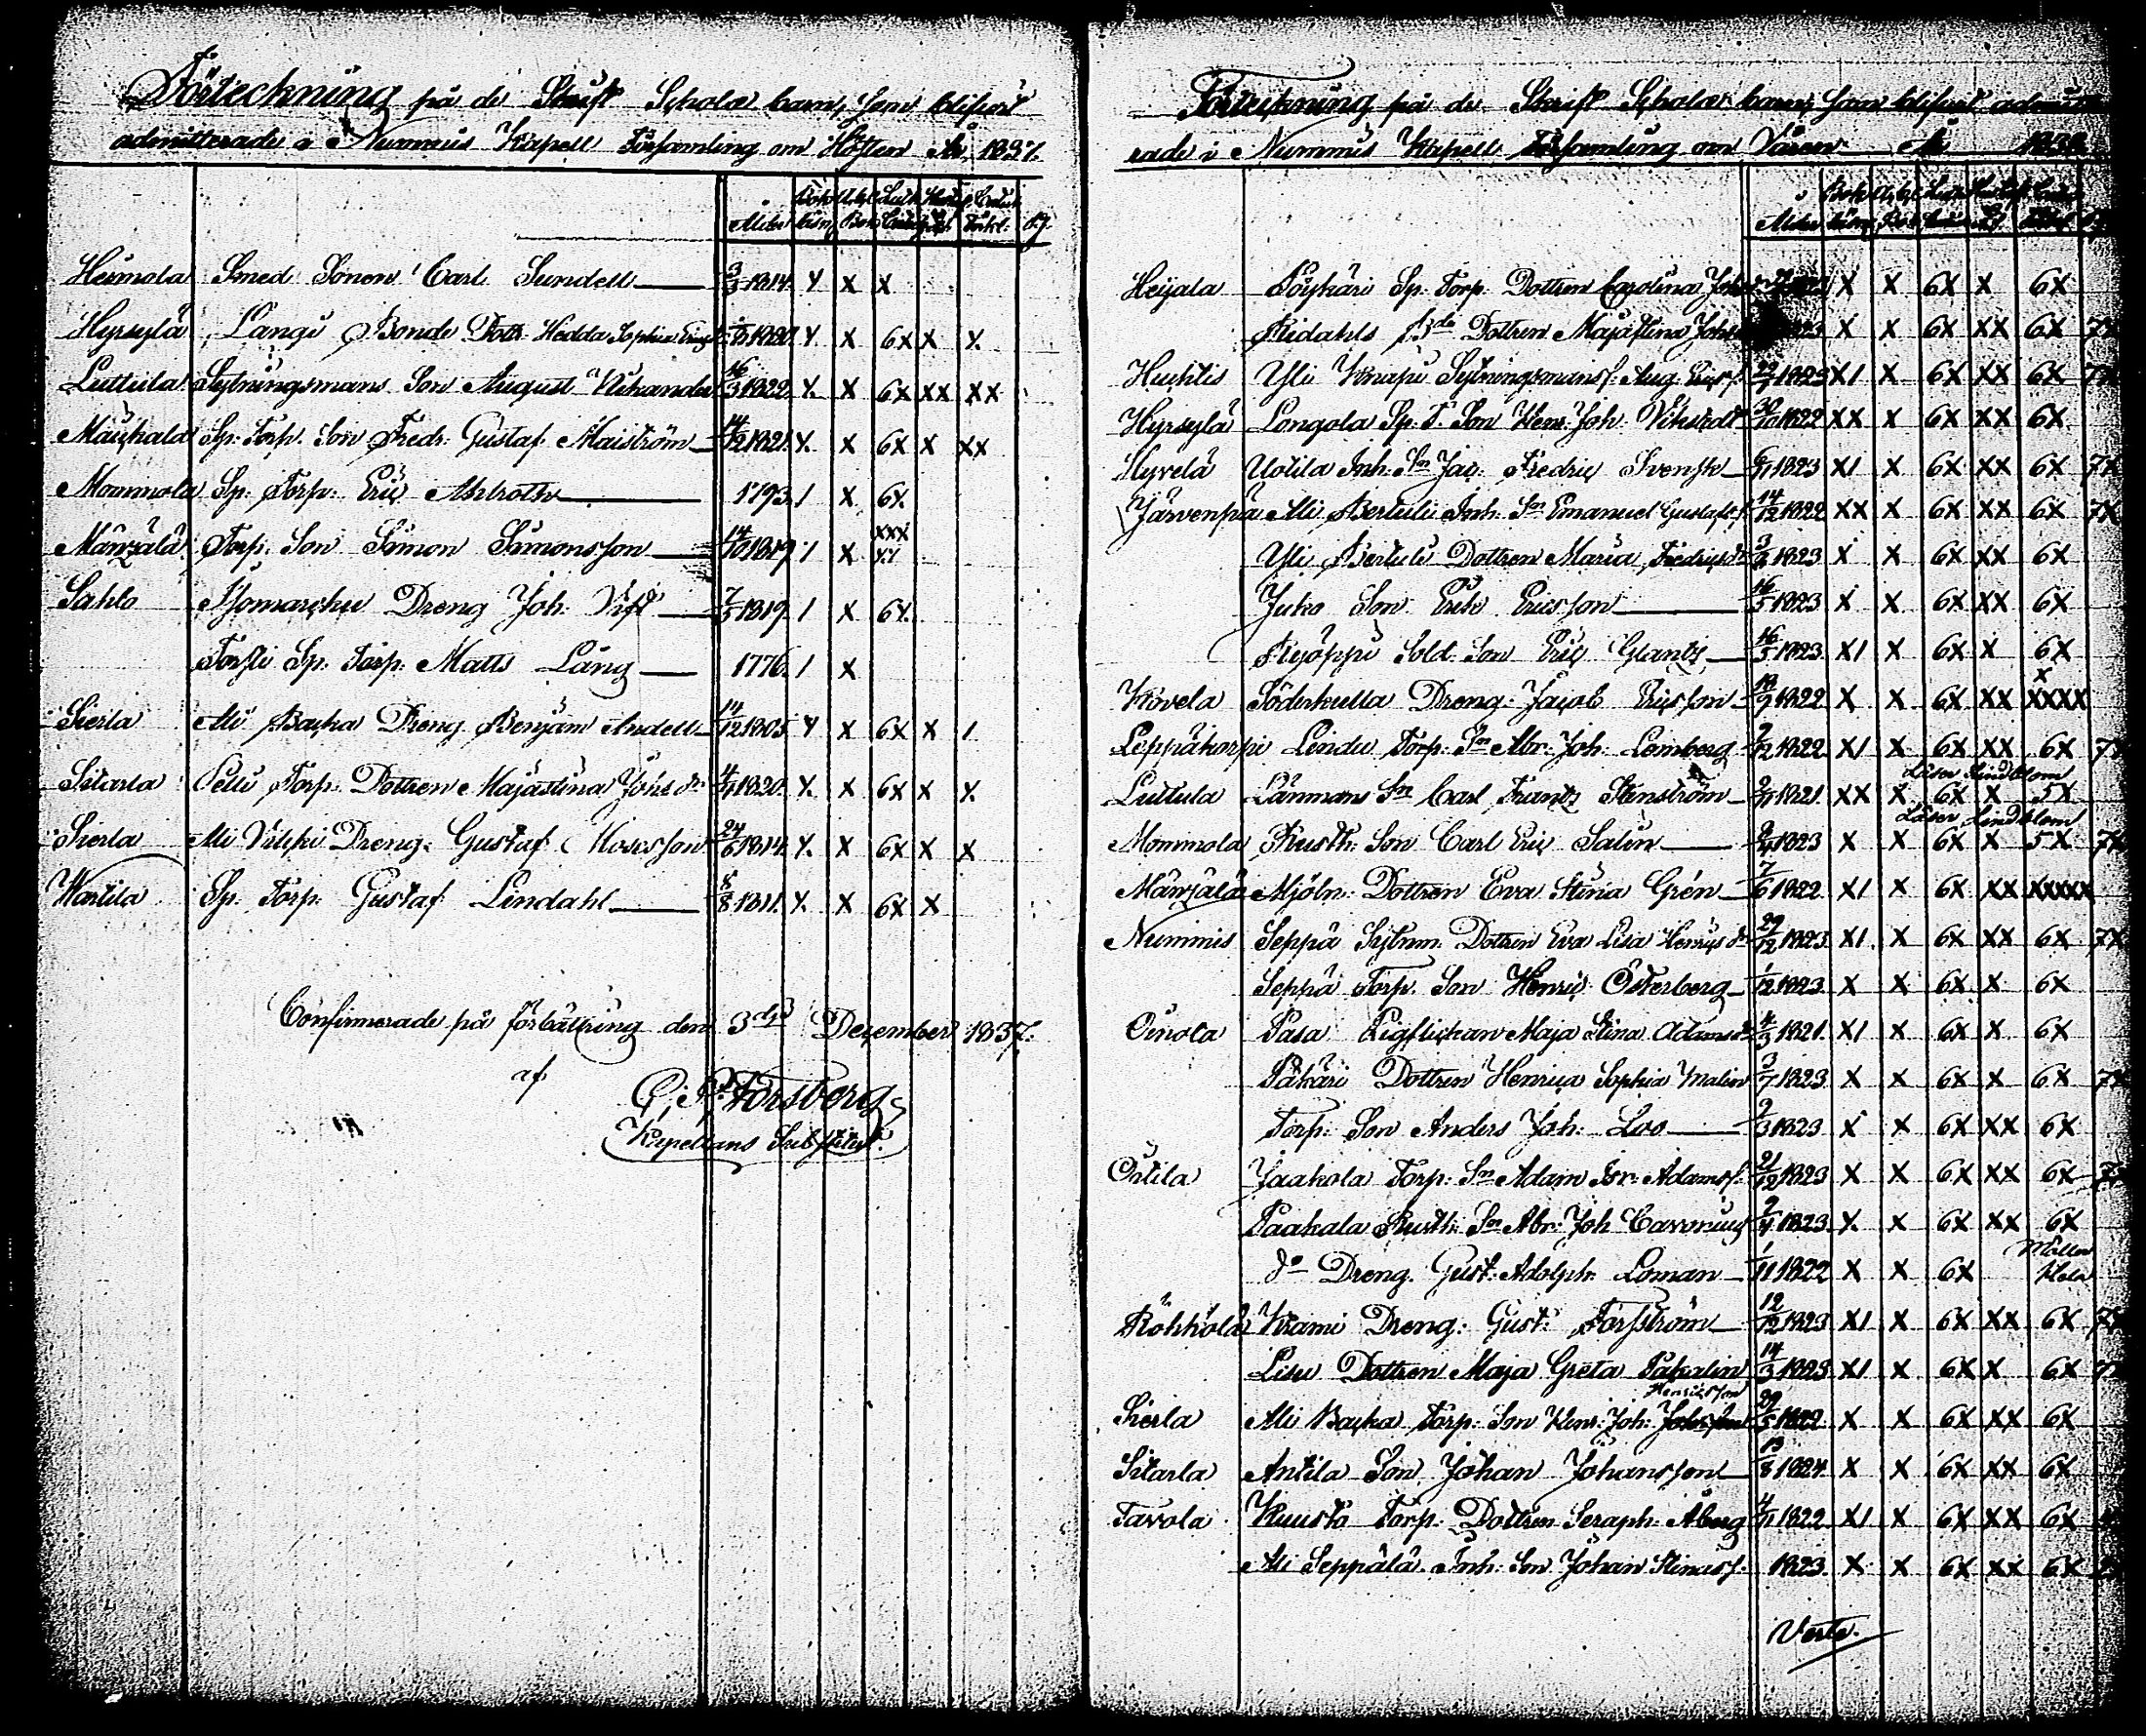 Förteckning på de Skrift Scholæ barn, som blifvit
admitterade i Nummis Kapell Församling om Hösten År 1837.
Ålder Bok
Heimola Smed Sonen Carl Sundell 3/3 1814. X X X
Hyrsylä Långi Bonde Dottr. Hedda Sophia 1820 X X 6X X X
Luttula Sytningsmans Son August Nikander 16/3 1822. X X 6X XX XX
Maukala Sp. Torp. Son Fredr. Gustaf Maiström 14/12 1821. X X 6X X XX
Mommola Sp. Torp. Eric Ahlroth 1793. I X 6X
Mänzälä Torp. Son Simon Simonsson 14/10 1819. I X XXX XX
Sahlo Dreng Joh: 7/5 1819. I X 6X
Torsti Sp. Torp. Matts Lång 1776. I X
Sierla Ali Backa Dreng Benjam Andell 14/12 1805 X X 6X X I
Sitarla Pelli Torp. Dottren Majastina Johs dr 1820. X X 6X X X
Sierla Ali Vilppi Dreng Gustaf Mosesson 24/6 1814. X X 6X X X
Wartila Sp. Torp. Gustaf Lindahl 5/8 1811. X X 6X X
Confirmerade på förbättring den 3dje December 1837.
af
Forsberg
Kapellans Substitut.
Förteckning på de Skrift Scholæ barn, som blifvit admitte-
rade i Nummis Kapell Församling om Våren År 1838
Ålder
Heijala Pöykäri Sp. Torp. Dottren Carolina X X 6X X 6X
Ridahls Dottren Majastina Johs X X 6X XX 6X 7X
Huhtis Yli Knapi Sytningsmans s. Aug. Ericss. 1823 XI X 6X XX 6X
Hyrsylä Longola Sp. T. Son Henr. Joh. 30/10 1822 XX X 6X XX 6X
Hyvelä Uotila Inh. Sn Jac. Fredric Svensk 1823 XI X 6X XX 6X 7X
Järvenpä Ali Bertuli Inh. Sn Emanuel Gustafs. 14/12 1822 XX X 6X XX 6X 7X
Yli Bertuli Dottren Maria Fredricsdr 1823 X X 6X XX 6X
Juko Son Erik Ericsson 16/5 1823 X X 6X XX 6X
Ryöppi Sold. Son Eric Glantz 16/5 1823 XI X 6X X 6X
Kovela Söderkulla Dreng Jacob Ericsson 18/9 1822 X X 6X XX X XXXX
Leppäkorpi Lindu Torp. Sn Abr. Joh. Lemberg 1822 XI X 6X XX 6X 7X
Läser Lindblom
Luttula Länmans Sn Carl Frantz Stenström 1821. XX X 6X X 5X
Läser Lindblom
Mommola Rusth. Son Carl Eric Salin 1823 X X 6X X 5X 7X
Mänzälä Mjöln. Dottren Eva Stina Grén 7/6 1822 XI X 6X XX XXXXX
Nummis Seppä Sytnm. Dottren Eva Lisa Henrics dr 29/12 1823 XI X 6X XX 6X 7X
Seppä Torp. Son Henric Österberg 1/12 1823 X X 6X X 6X
Oinola Pasa Pigflickan Maja Stina Adams dr 4/3 1821. XI X 6X X 6X
Päkäri Dottren Henrica Sophia Malin 3/7 1823 X X 6X X 6X 7X
Torp. Son Anders Joh. Loo 9/3 1823 X X 6X XX 6X
Ostila Jaakola Torp. Sn Adam Isr. Adamss. 21/12 1823 X X 6X XX 6X
Paakala Rusth. Sn Abr. Joh 1823. X X 6X XX 6X
do Dreng Gust. Adolph Loman 1/11 1822 X X 6X
Röhkölä Krami Dreng Gust. Forsström 12/12 1823 XI X 6X XX 6X 7X
Lisu Dottren Maja Greta Päkalin 14/3 1823 XI X 6X X 6X
Henricsson
Sierla Ali Backa Torp. Son Henr. Joh. 29/5 1822 X X 6X XX 6X
Sitarla Antila Son Johan Johansson 13/8 1824. X X 6X XX 6X
Tavola Kuusto Torp. Dottren Seraph. Åberg 4/11 1822 XI X 6X XX 6X
Ali Seppälä Inh. Son Johan Stinass. 1823. X X 6X XX 6X
Verte.